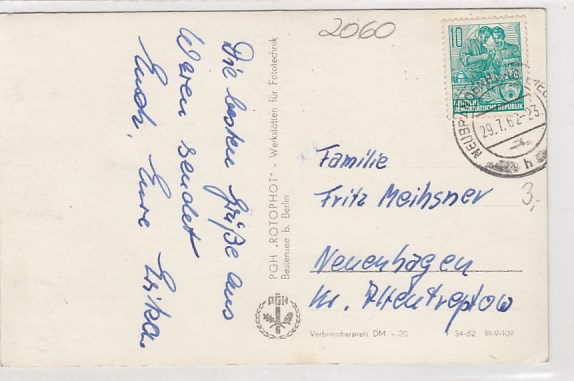 2060
Die besten Grüße aus
Waren sendet
Euch, Eure Erika.
PGH „ROTOPHOT" - Werkstätten für Fototechnik
Bestensee b. Berlin
PGH
10
DEUTSCHE
DEMOKRATISCHE REPUBLIK
NEUBRANDENBURG
29.7.62-23
h
Familie
Fritz Meihsner
Neuenhagen
Kr. Altentreptow
3,-
Verbraucherpreis DM -.20
F 34-62 III-9-109